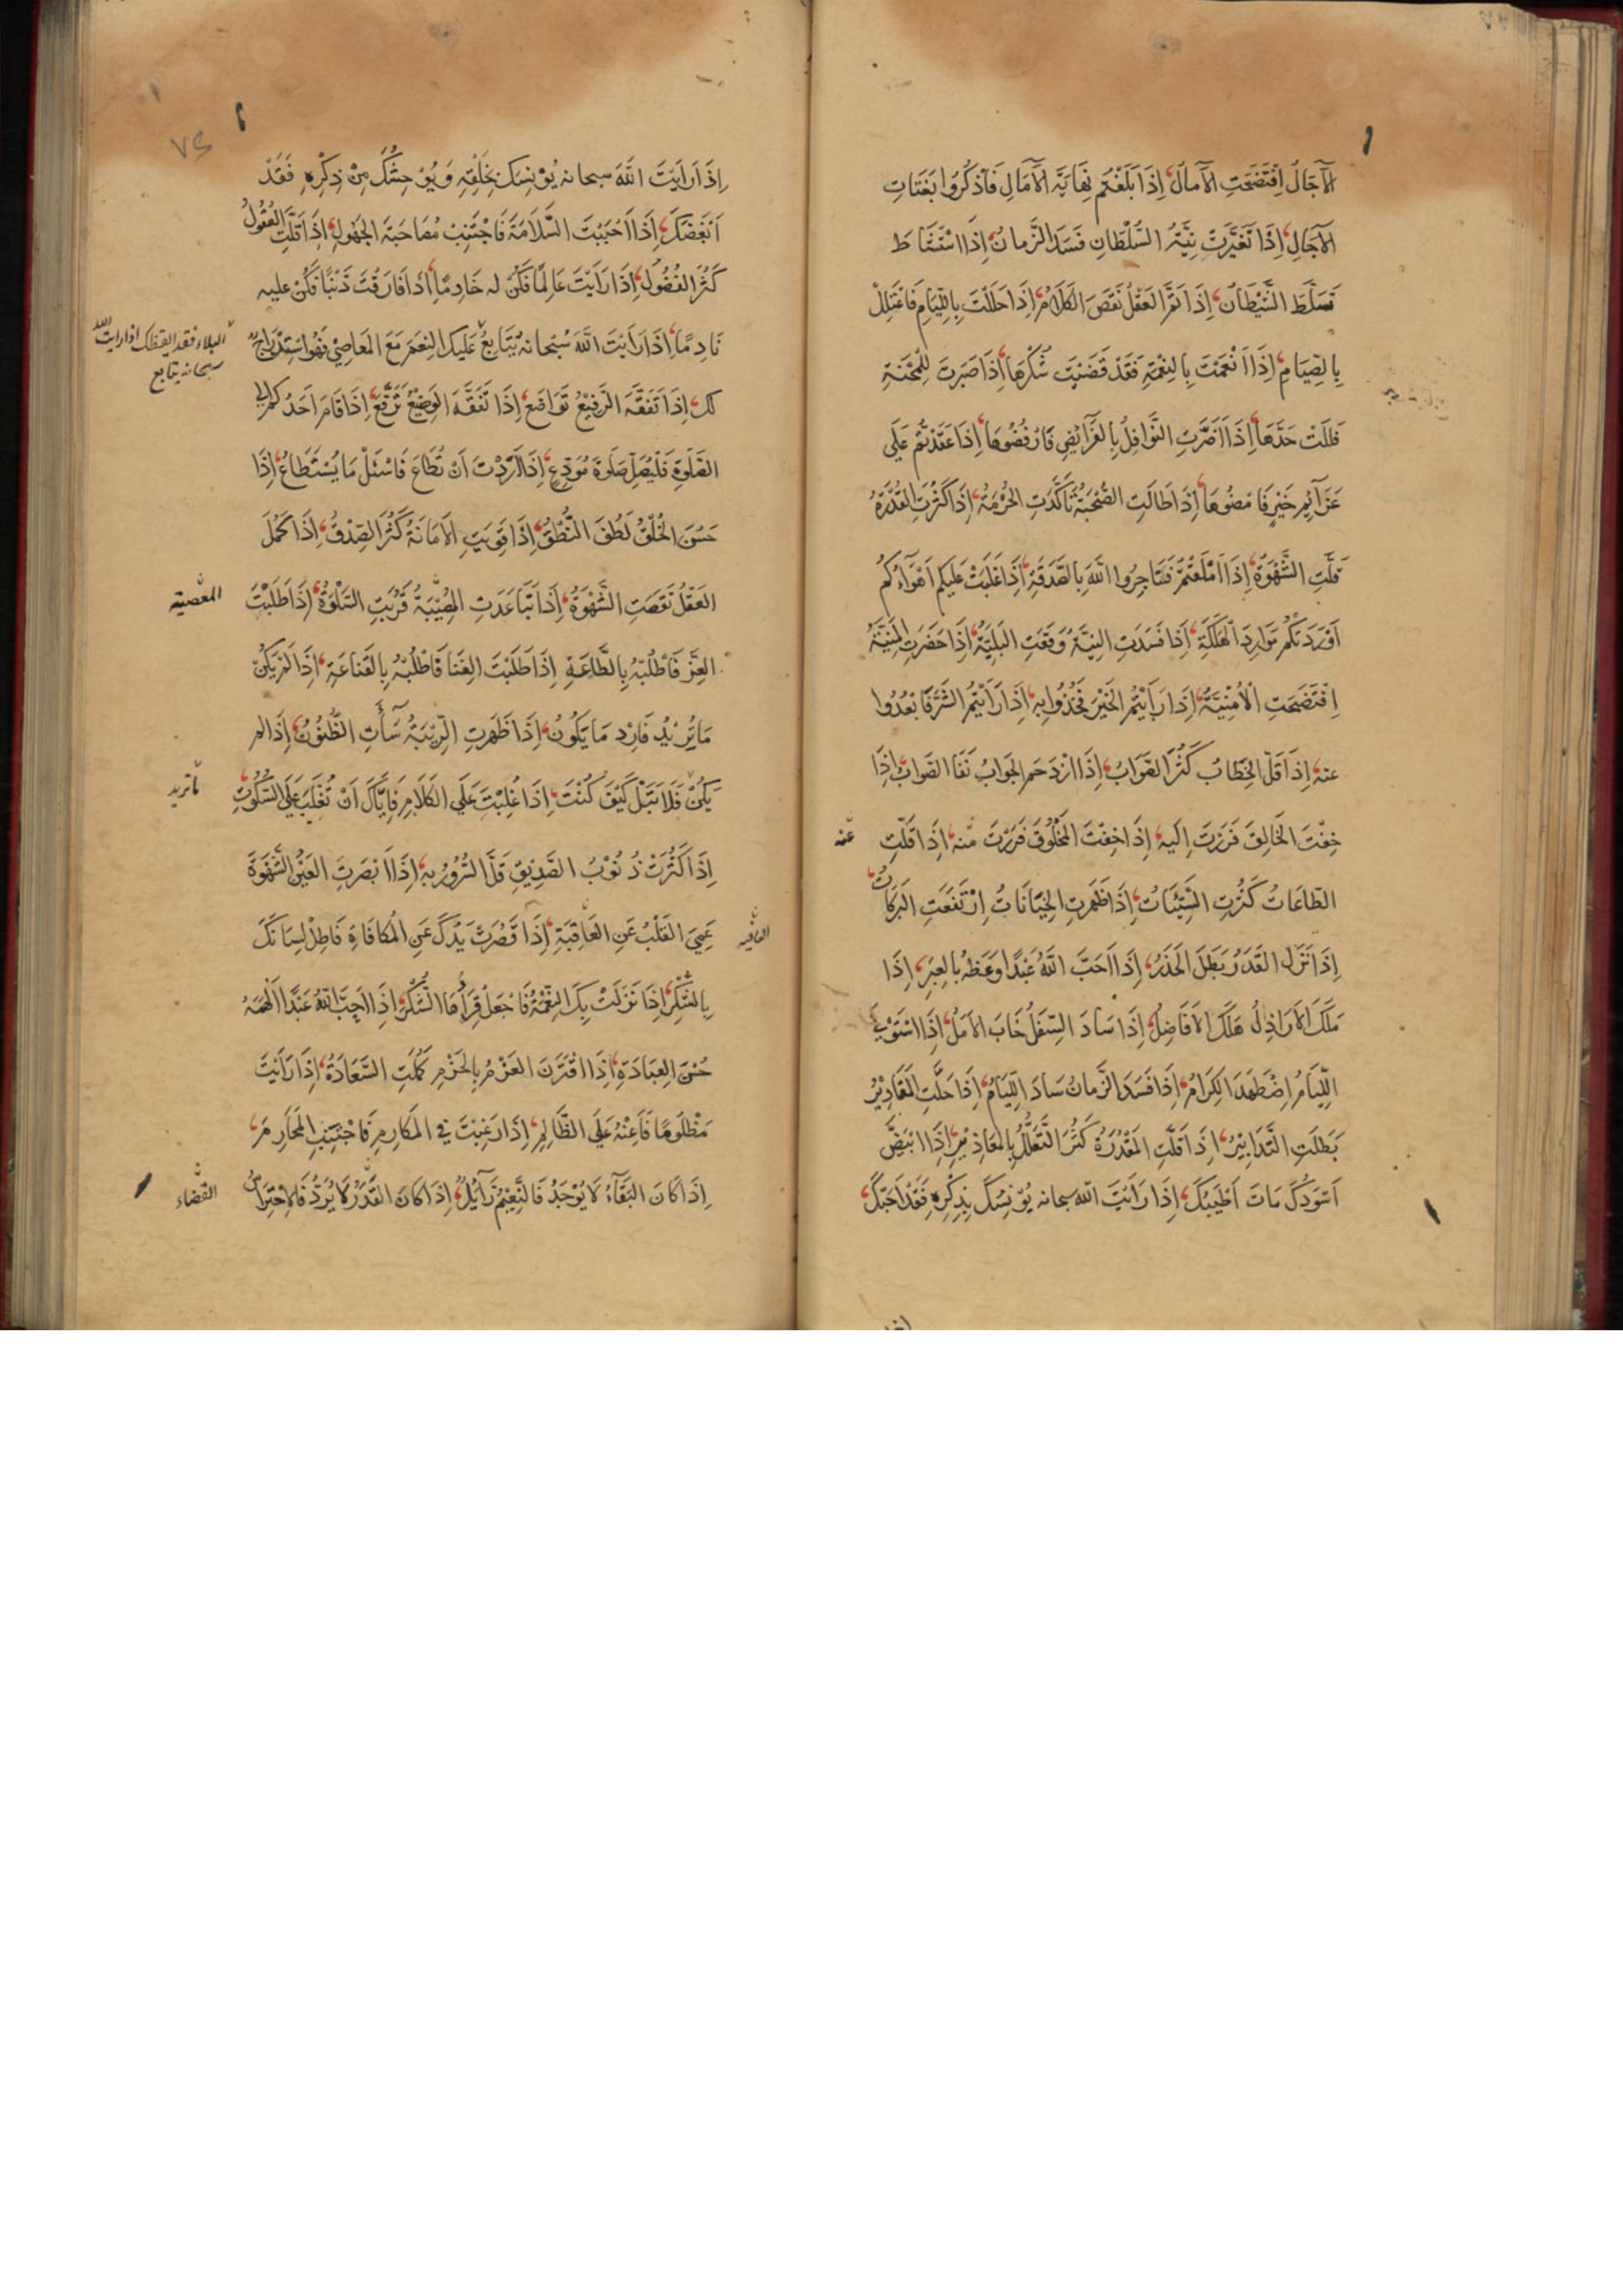 الآجَالُ اِفْتَضَحَتِ الآمالُ اِذَا بَلَغْتُم نِهَايَةَ الآمَالِ فَاذْكُرُوا بَغَتَاتِ
الآجَالِ اِذَا تَغَيَّرَتْ نِيَّةُ السُّلْطَانِ فَسَدَ الزَّمانُ اِذَا اسْتَشَاطَ
تَسَلَّطَ الشَّيْطَانُ اِذَا تَمَّ العَقْلُ نَقَصَ الكَلَامُ اِذَا حَلَلْتَ بِاللِّيَامِ فَاعْتَلِلْ
بِالصِّيَامِ اِذَا اَنْعَمْتَ بِالنِعْمَةِ فَقَدْ قَضَيْتَ شُكْرَهَا اِذَا صَبَرْتَ لِلْمِحْنَةِ
فَلَلْتَ حَدَّهَا اِذَا اَضَرَّتِ النَّوَافِلُ بِالفَرَآيِضِ فَارْفُضُوهَا اِذَا عَقَدْتُم عَلَى
عَزَآيِم خَيْرٍ فَامْضُوهَا اِذَا طَالَتِ الصُّحْبَةُ تَأَكَّدَتِ الحُرْمَةُ اِذَا كَثُرَتِ القُدْرَةُ
قَلَّتِ الشَّهْوَةُ اِذَا اَمْلَقْتُمْ فَتَاجِرُوا اللّهَ بِالصَّدَقَةِ اِذَا غَلَبَتْ عَلَيكم اَهْوَآءُكُمْ
اَوْرَدَتْكُمْ مَوَارِدَ الهَلَكَةِ اِذَا فَسَدَتِ النِيَّةُ وَقَعَتِ البَلِيَّةُ اِذَا حَضَرَتِ المَنِيَّةُ
اِفْتَضَحَتِ الْاُمْنِيَّةُ اِذَا رَاَيْتُمُ الخَيْرَ فَخُذُوا بِهِ اِذَا رَاَيْتُمُ الشَّرَّ فَابْعُدُوا
عنه اِذَا قَلَّ الخِطَابُ كَثُرَ الصَّوَابُ اِذَا ازْدَحَمَ الجَوَابُ نَفَا الصَوابُ اِذَا
خِفْتَ الخَالِقَ فَرَرْتَ اِلَيهِ اِذَا خِفْتَ المَخْلُوقَ فَرَرْتَ منه اِذَا قَلَّتِ
عنه
الطَاعَاتُ كَثُرَتِ السَّيِّئَاتُ اِذَا ظَهَرَتِ الخِيَانَاتُ اِرْتَفَعَتِ البَرَكَاتُ
اِذَا نَزَلَ القَدَرُ بَطَلَ الحَذَرُ اِذَا اَحَبَّ اللّهُ عَبْدًا وَعَظَهُ بِالعِبَرِ اِذَا
مَلَكَ الاَرَاذِلُ هَلَكَ الاَفَاضِلُ اِذَا سَادَ السِفَلُ خَابَ الاَمَلُ اِذَا اسْتَوْلَى
اللِّيَامُ اِضْطَهَدَ الكِرَامُ اِذَا فَسَدَ الزَّمانُ سَادَ اللِّيَامُ اِذَا حَلَّتِ المَقَادِيْرُ
بَطَلَتِ التَّدَابِيْرُ اِذَا قَلَّتِ المَقْدُرَةُ كَثُرَ التَّعَلُّلُ بِالمَعَاذِيْرِ اِذَا ابْيَضَّ
اَسْوَدُكَ مَاتَ اَطْيَبُكَ اِذَا رَاَيْتَ اللّه سبحانه يُوْنِسُكَ بِذِكْرِهِ فَقَدْ اَحَبَّكَ
اِذَا رَاَيْتَ اللّهَ سبحانه يُوْنِسُكَ بِخَلْقِهِ وَيُوْحِشُكَ مِنْ ذِكْرِهِ فَقَدْ
اَبْغَضَكَ اِذَا اَحْبَبْتَ السَّلَامَةَ فَاجْتَنِبْ مُصَاحَبَةَ الجَهُولِ اِذَا قَلَّتِ العُقُولُ
كَثُرَ الفُضُولُ اِذَا رَاَيْتَ عَالِمًا فَكُنْ له خَادِمًا اِذَا فَارَقْتَ ذَنْبًا فَكُنْ عليه
نَادِمًا اِذَا رَاَيْتَ اللّهَ سُبْحانهُ يُتَابِعُ عَلَيك النِعَمَ مَعَ المَعَاصِي فَهُوَ اسْتِدْرَاجٌ
البلاء فقد ايقظك اذا رايت الله
سبحانه يتابع
لك اِذَا تَفَقَّهَ الرَّفِيْعُ تَوَاضَعَ اِذَا تَفَقَّهَ الوَضِيْعُ تَرَفَّعَ اِذَا قَامَ اَحَدُكم اِلى
الصَّلوةِ فَلْيُصَلِّ صَلوةَ مُوَدِّعٍ اِذَا اَرَدْتَ اَنْ تُطَاعَ فَاسْئَلْ مَا يُسْتَطَاعُ اِذَا
حَسُنَ الخُلْقُ لَطُفَ النُّطْقُ اِذَا قَوِيَتِ الاَمَانَةُ كَثُرَ الصِّدْقُ اِذَا كَمُلَ
العَقْلُ نَقَصَتِ الشَّهْوَةُ اِذَا تَبَاعَدَتِ المُصِيْبَةُ قَرُبَتِ السَّلْوَةُ اِذَا طَلَبْتَ
المعصية
العِزَّ فَاطْلُبْهُ بِالطَّاعَةِ اِذَا طَلَبْتَ الغِنَا فَاطْلُبْهُ بِالقَنَاعَةِ اِذَا لَمْ يَكُنْ
مَا تُرِيْدُ فَارِدْ مَا يَكُونُ اِذَا ظَهَرَتِ الرِّيْبَةُ سَآءَتِ الظُّنُوْنُ اِذَا لم
يَكُنْ فَلَا تُبَلْ كَيْفَ كُنْتَ اِذَا غُلِبْتَ عَلَى الكَلَامِ فَاِيَّاكَ اَنْ تُغْلَبَ عَلَى السُّكُوْتِ
ماتريد
اِذَا كَثُرَتْ ذُنُوْبُ الصَّدِيْقِ قَلَّ السُّرُوْرُ بِهِ اِذَا اَبْصَرَتِ العَيْنُ الشَّهْوَةَ
عَمِيَ القَلْبُ عَنِ العَاقِبَةِ اِذَا قَصُرَتْ يَدُكَ عَنِ المُكَافَاةِ فَاَطِلْ لِسَانَكَ
العافية
بِالشُّكْرِ اِذَا نَزَلَتْ بِكَ النِعْمَةُ فَاجْعَلْ قِرَاهَا الشُّكْرَ اِذَا اَحَبَّ اللّهُ عَبْدًا اَلْهَمَهُ
حُسْنَ العِبَادَةِ اِذَا اقْتَرَنَ العَزْمُ بِالحَزْمِ كَمُلَتِ السَّعَادَةُ اِذَا رَاَيْتَ
مَظْلُومًا فَاَعِنْهُ عَلَى الظَّالِمِ اِذَا رَغِبْتَ فِي المَكَارِمِ فَاجْتَنِبِ المَحَارِمَ
اِذَا كَانَ البَقَآءُ لَا يُوْجَدُ فَالنَّعِيْمُ زَآيِلٌ اِذَا كَانَ القَدَرُ لَا يُرَدُّ فَالاحْتِرَاسُ
القضاء